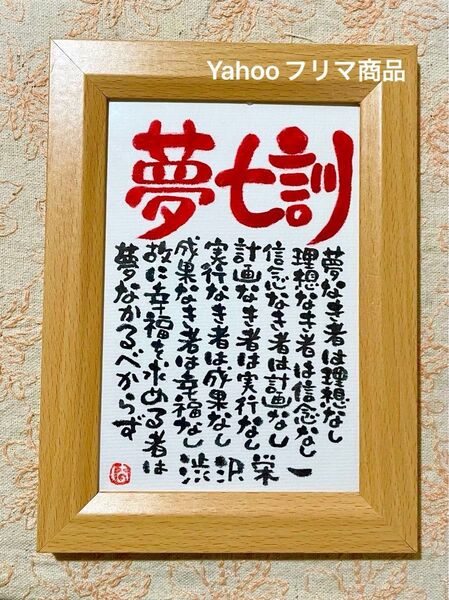 Yahooフリマ商品
夢七訓
夢なき者は理想なし
理想なき者は信念なし
信念なき者は計画なし
計画なき者は実行なし
実行なき者は成果なし
成果なき者は幸福なし
故に幸福を求める者は
夢なかるべからず
渋沢栄一